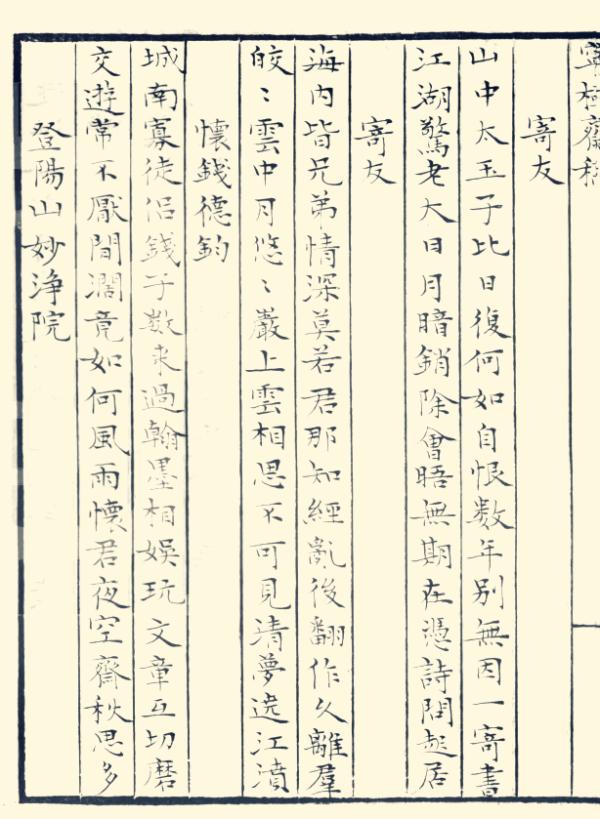 寧極齋稿
寄友
山中太玉子比日復何如自恨数年別無因一寄書
江湖驚老大日月暗銷除會晤無期在憑詩問起居
寄友
海內皆兄弟情深莫若君那知經亂後翻作久離羣
皎〻雲中月悠〻巖上雲相思不可見清夢遶江濆
懷錢德鈞
城南寡徒侣錢子数来過翰墨相娛玩文章互切磨
交遊常不厭間濶竟如何風雨懷君夜空齋秋思多
登陽山妙淨院